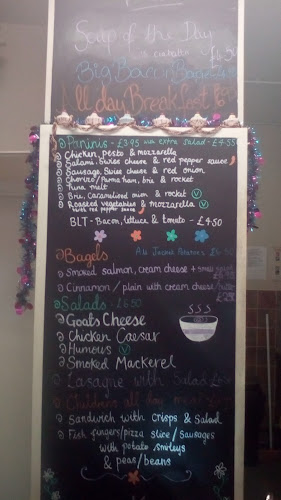 Soup of the Day
with ciabatta £4.50
Big Bacon Bap
All day Breakfast
Paninis - £3.95 with extra salad - £4.55
Chicken, pesto & mozzarella
Salami, Swiss cheese & red pepper sauce
Sausage, Swiss cheese & red onion
Chorizo/Parma ham, brie & rocket
Tuna melt
Brie, Caramelised onion & rocket V
Roasted vegetables & mozzarella V
with red pepper sauce
BLT - Bacon, lettuce & tomato - £4.50
Bagels
Jacket Potatoes
Smoked salmon, cream cheese + small
Cinnamon / plain with cream cheese
Salads - £6.50
Goats Cheese
Chicken Caesar
Humous V
Smoked Mackerel
Lasagne with Salad
Childrens all day
Sandwich with crisps & Salad
Fish fingers/pizza slice/Sausages
with potato smileys
& peas/beans